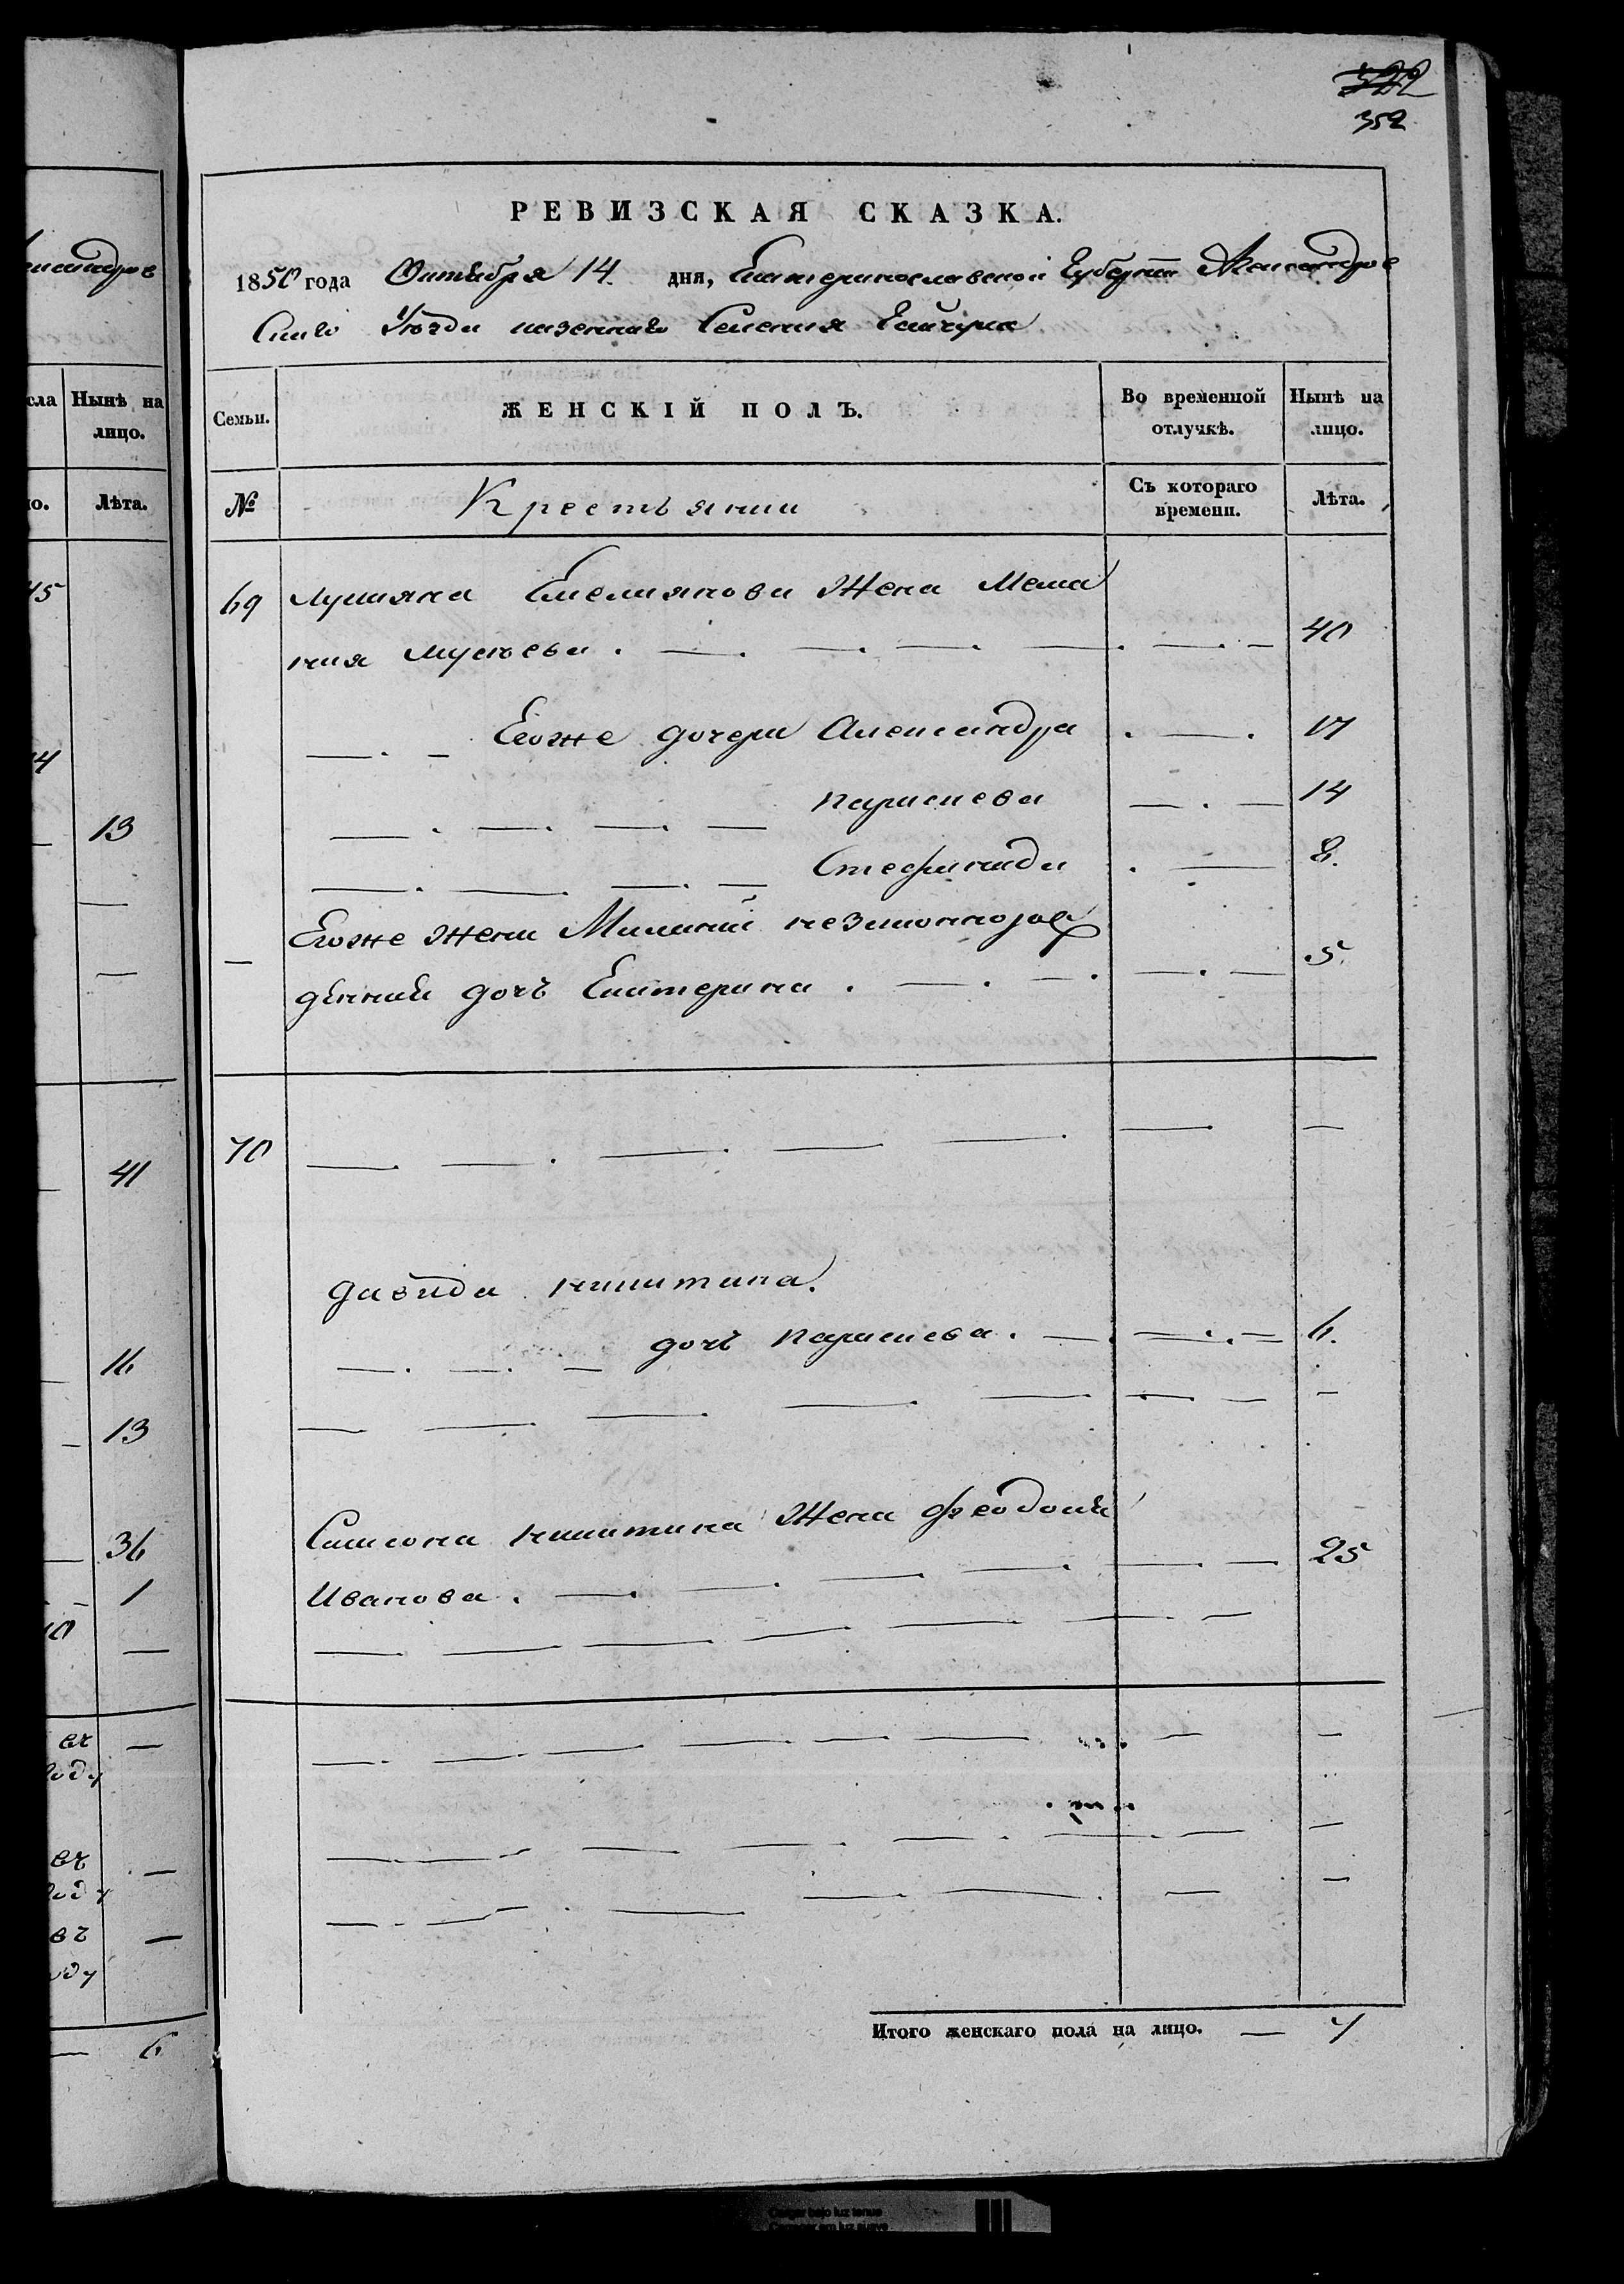 322
352
РЕВИЗСКАЯ СКАЗКА.
1850 года Октября 14. дня, Екатеринославской Губернии Александров
скаго Уѣзда казеннаго Селения
Семьи. ЖЕНСКІЙ ПОЛЪ. Во временной отлучкѣ. Нынѣ на лицо.
№ Крестьянки Съ котораго времени. Лѣта.
69 Лукияна Емелиянова Жена Мела
ния Мусѣева. 40
Егоже дочери Александра 17
Параскева 14
Стефанида 8.
Егоже жены Мелании незаконнорож
дѣнная дочь Екатерина. 5.
70
давида никитина.
дочь Параскева. 6.
Самсона никитина Жена Феодосия
Иванова. 25
Итого женскаго пола на лицо. 7
ександров
сла Нынѣ на лицо.
ло. Лѣта.
45
44
13
41
16
13
36
1
10
въ
году
въ
году
въ
оду
6